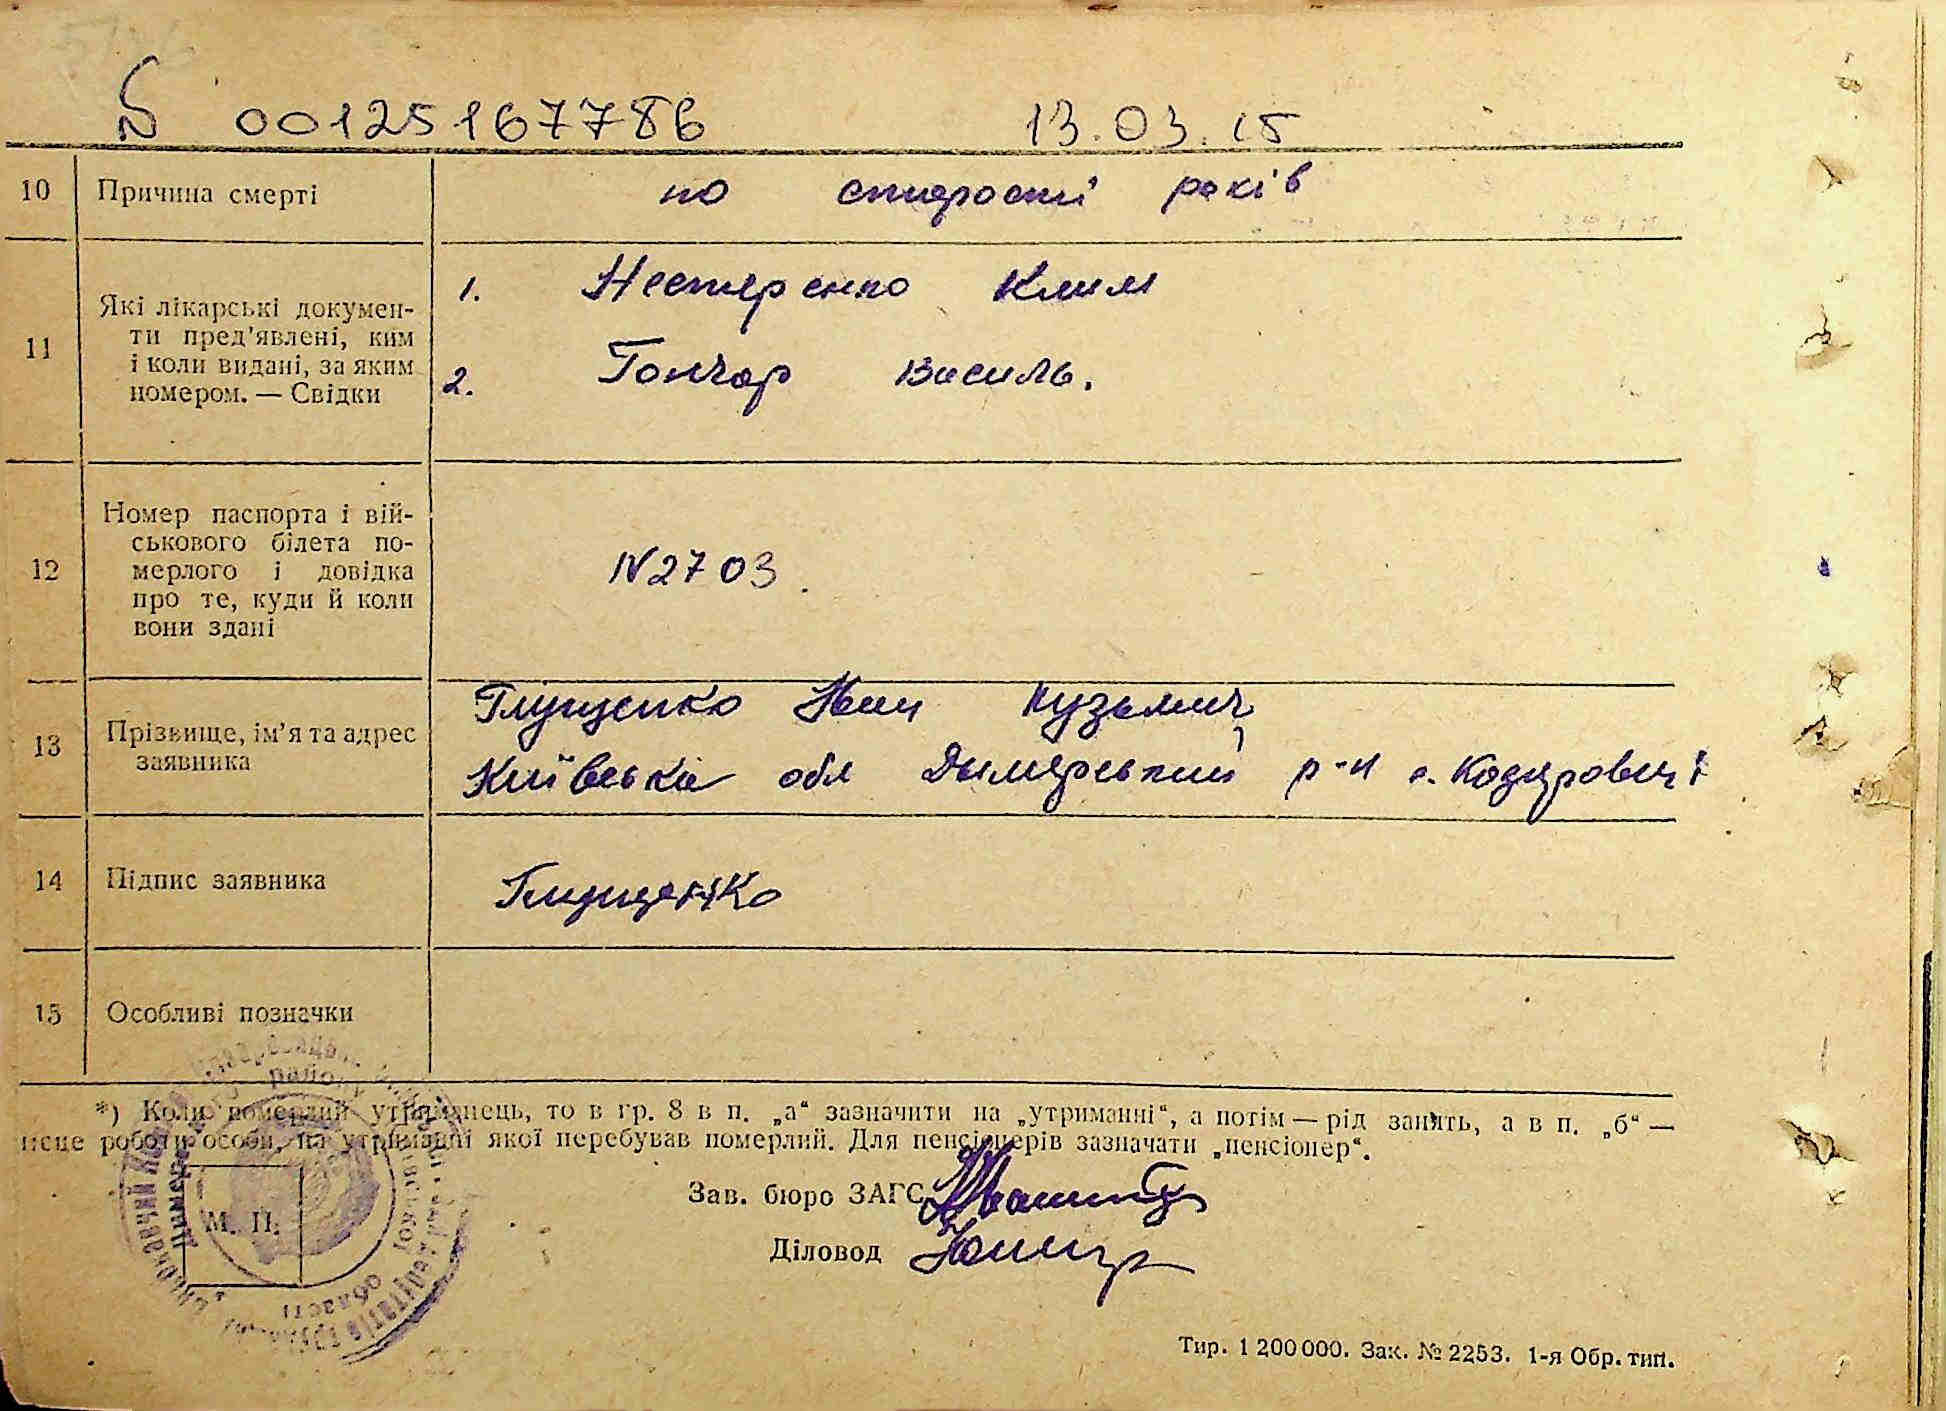 00125167786 13.03.15
10 Причина смерті по старості років
11 Які лікарські докумен-
ти пред'явлені, ким
і коли видані, за яким
номером. — Свідки
1. Нестеренко Клим
2. Гончар Василь.
12 Номер паспорта і вій-
ськового білета по-
мерлого і довідка
про те, куди й коли
вони здані
N2703
13 Прізвище, ім'я та адрес
заявника
Глущенко Іван Кузьмич
Київська обл Димерський р-н с. Козаровичі
14 Підпис заявника Глущенко
15 Особливі позначки
*) Коли померлий утриманець, то в гр. 8 в п. „а“ зазначити на „утриманні“, а потім — рід занять, а в п. „б“ —
місце роботи особи, на утриманні якої перебував померлий. Для пенсіонерів зазначати „пенсіонер“.
Зав. бюро ЗАГС
Діловод
М. П.
району
області
Тир. 1 200 000. Зак. № 2253. 1-я Обр. тип.